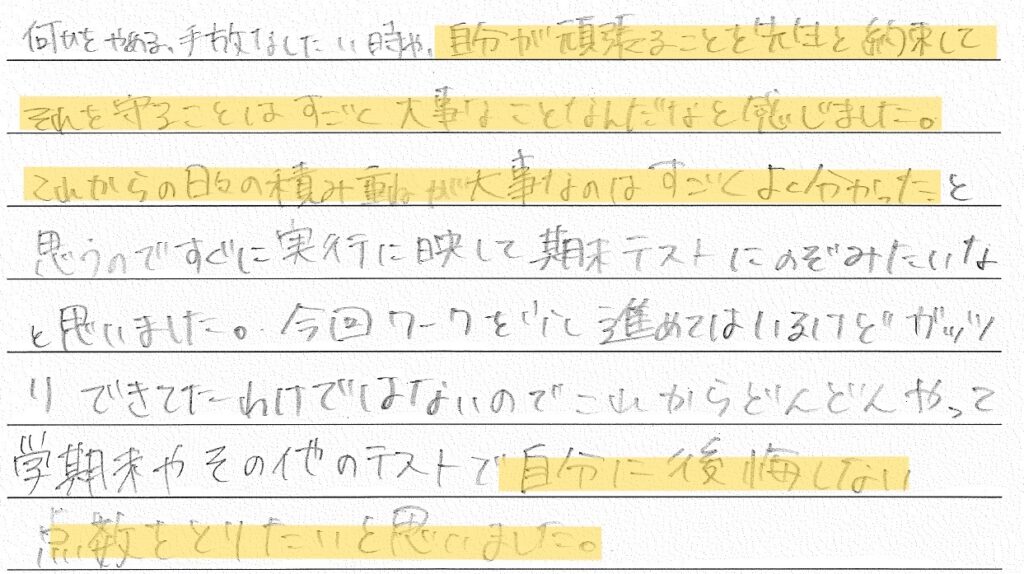 何かをやめる、手放なしたい時や、自分が頑張ることを先生と約束して
それを守ることはすごく大事なことなんだなと感じました。
これからの日々の積み重ねが大事なのはすごくよく分かったと
思うのですぐに実行に映して期末テストにのぞみたいな
と思いました。今回ワークを少し進めてはいるけどガッツ
リできてたわけではないのでこれからどんどんやって
学期末やその他のテストで自分に後悔しない
点数をとりたいと思いました。